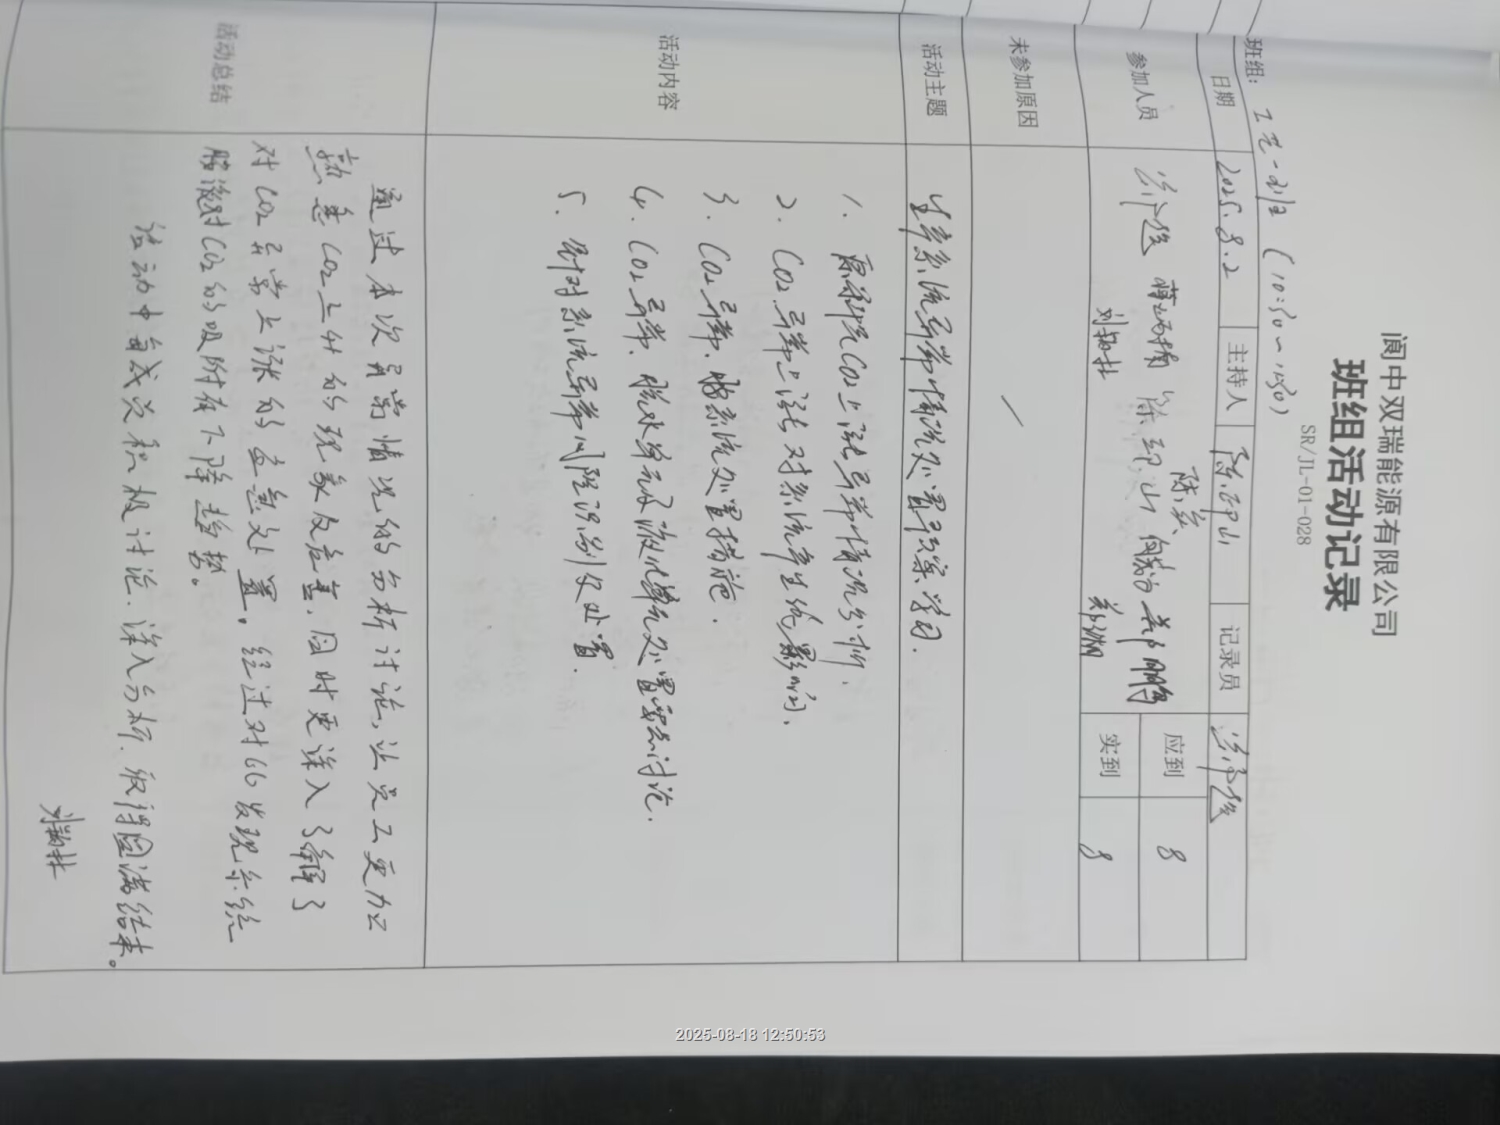 阆中双瑞能源有限公司
班组活动记录
SR/JL-01-028
班组: 工艺一班 (10:30~11:30)
日期 2025.8.2 主持人 陈印山 记录员
参加人员 陈印山
应到 8
实到 8
未参加原因 /
活动主题 生产系统异常情况处置预案学习.
活动内容
1. 原料气CO2上涨异常情况分析.
2. CO2异常上涨对系统产生的影响.
3. CO2异常,脱系统处置措施.
4. CO2异常,脱水单元及液化单元处置要点讨论.
5. 针对系统异常风险识别及处置.
活动总结
通过本次异常情况的分析讨论,让员工更加
熟悉CO2上升的现象及危害,同时更深入了解了
对CO2异常上涨的应急处置。经过对比发现系统
胺液对CO2的吸附有下降趋势。
活动中每成员积极讨论.深入分析.取得圆满结果。
2025-08-18 12:50:53